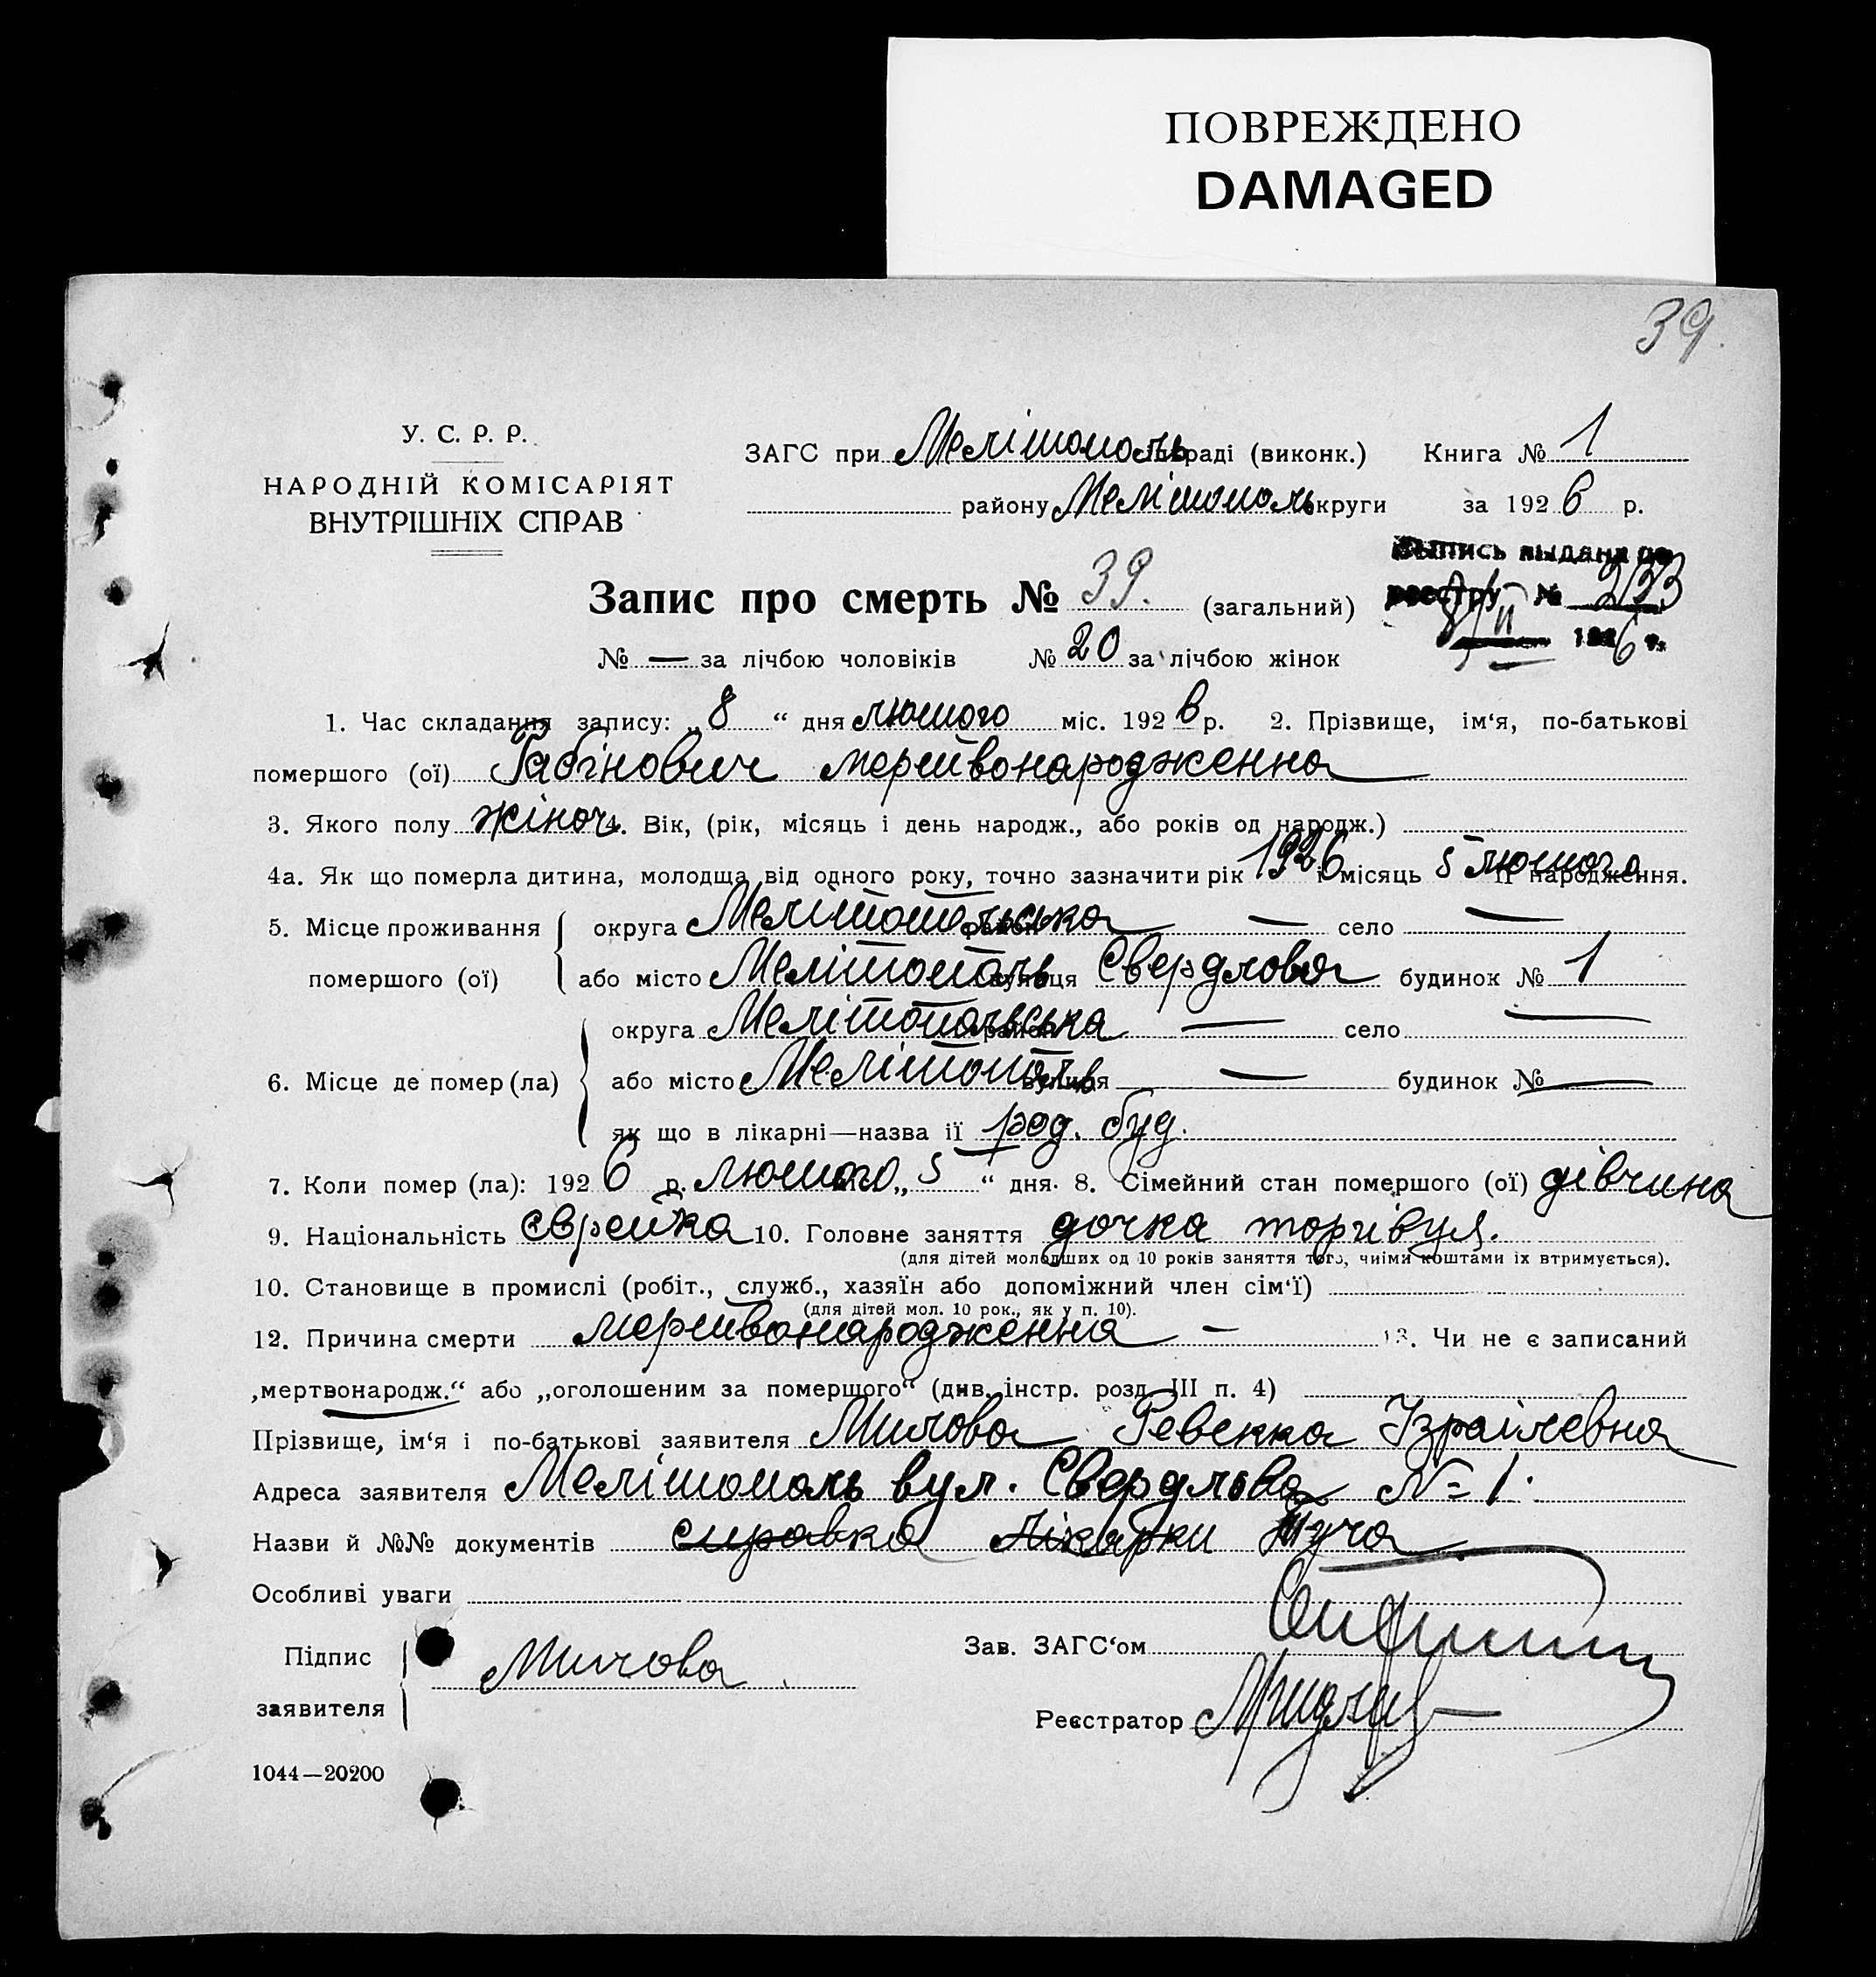 ПОВРЕЖДЕНО
DAMAGED
39.
У. С. Р. Р.
НАРОДНІЙ КОМІСАРІЯТ
ВНУТРІШНІХ СПРАВ
ЗАГС при Мелітополь раді (виконк.) Книга № 1
району Мелітополь округи за 1926 р.
Выпись выдана по
реестру № 2133
8/II 1926 г.
Запис про смерть № 39. (загальний)
№ — за лічбою чоловіків № 20 за лічбою жінок
1. Час складання запису: „8“ дня лютого міс. 1926 р. 2. Прізвище, ім‘я, по-батькові
помершого (ої) Рабінович мертвонародженна
3. Якого полу жіноч. 4. Вік, (рік, місяць і день народж., або років од народж.)
4а. Як що померла дитина, молодща від одного року, точно зазначити рік 1926 і місяць 5 лютого її народження.
5. Місце проживання помершого (ої)
округа Мелітопольська район — село —
або місто Мелітополь вулиця Свердлова будинок № 1
6. Місце де помер (ла)
округа Мелітопольська район — село —
або місто Мелітополь вулиця — будинок № —
як що в лікарні—назва ії род. буд.
7. Коли помер (ла): 1926 р. лютого „5“ дня. 8. Сімейний стан помершого (ої) дівчина
9. Національність єврейка 10. Головне заняття дочка торгівця.
(для дітей молодших од 10 років заняття того, чиїми коштами їх втримується).
10. Становище в промислі (робіт., служб., хазяїн або допоміжний член сім‘ї)
(для дітей мол. 10 рок., як у п. 10).
12. Причина смерти мертвонародження — 13. Чи не є записаний
„мертвонародж.“ або „оголошеним за помершого“ (див. інстр. розд. III п. 4)
Прізвище, ім‘я і по-батькові заявителя Милова Ревекка Ізраілевна
Адреса заявителя Мелітополь вул. Свердлова № 1.
Назви й №№ документів справка лікарки
Особливі уваги
Підпис заявителя Милова
Зав. ЗАГС‘ом
Реєстратор
1044—20200